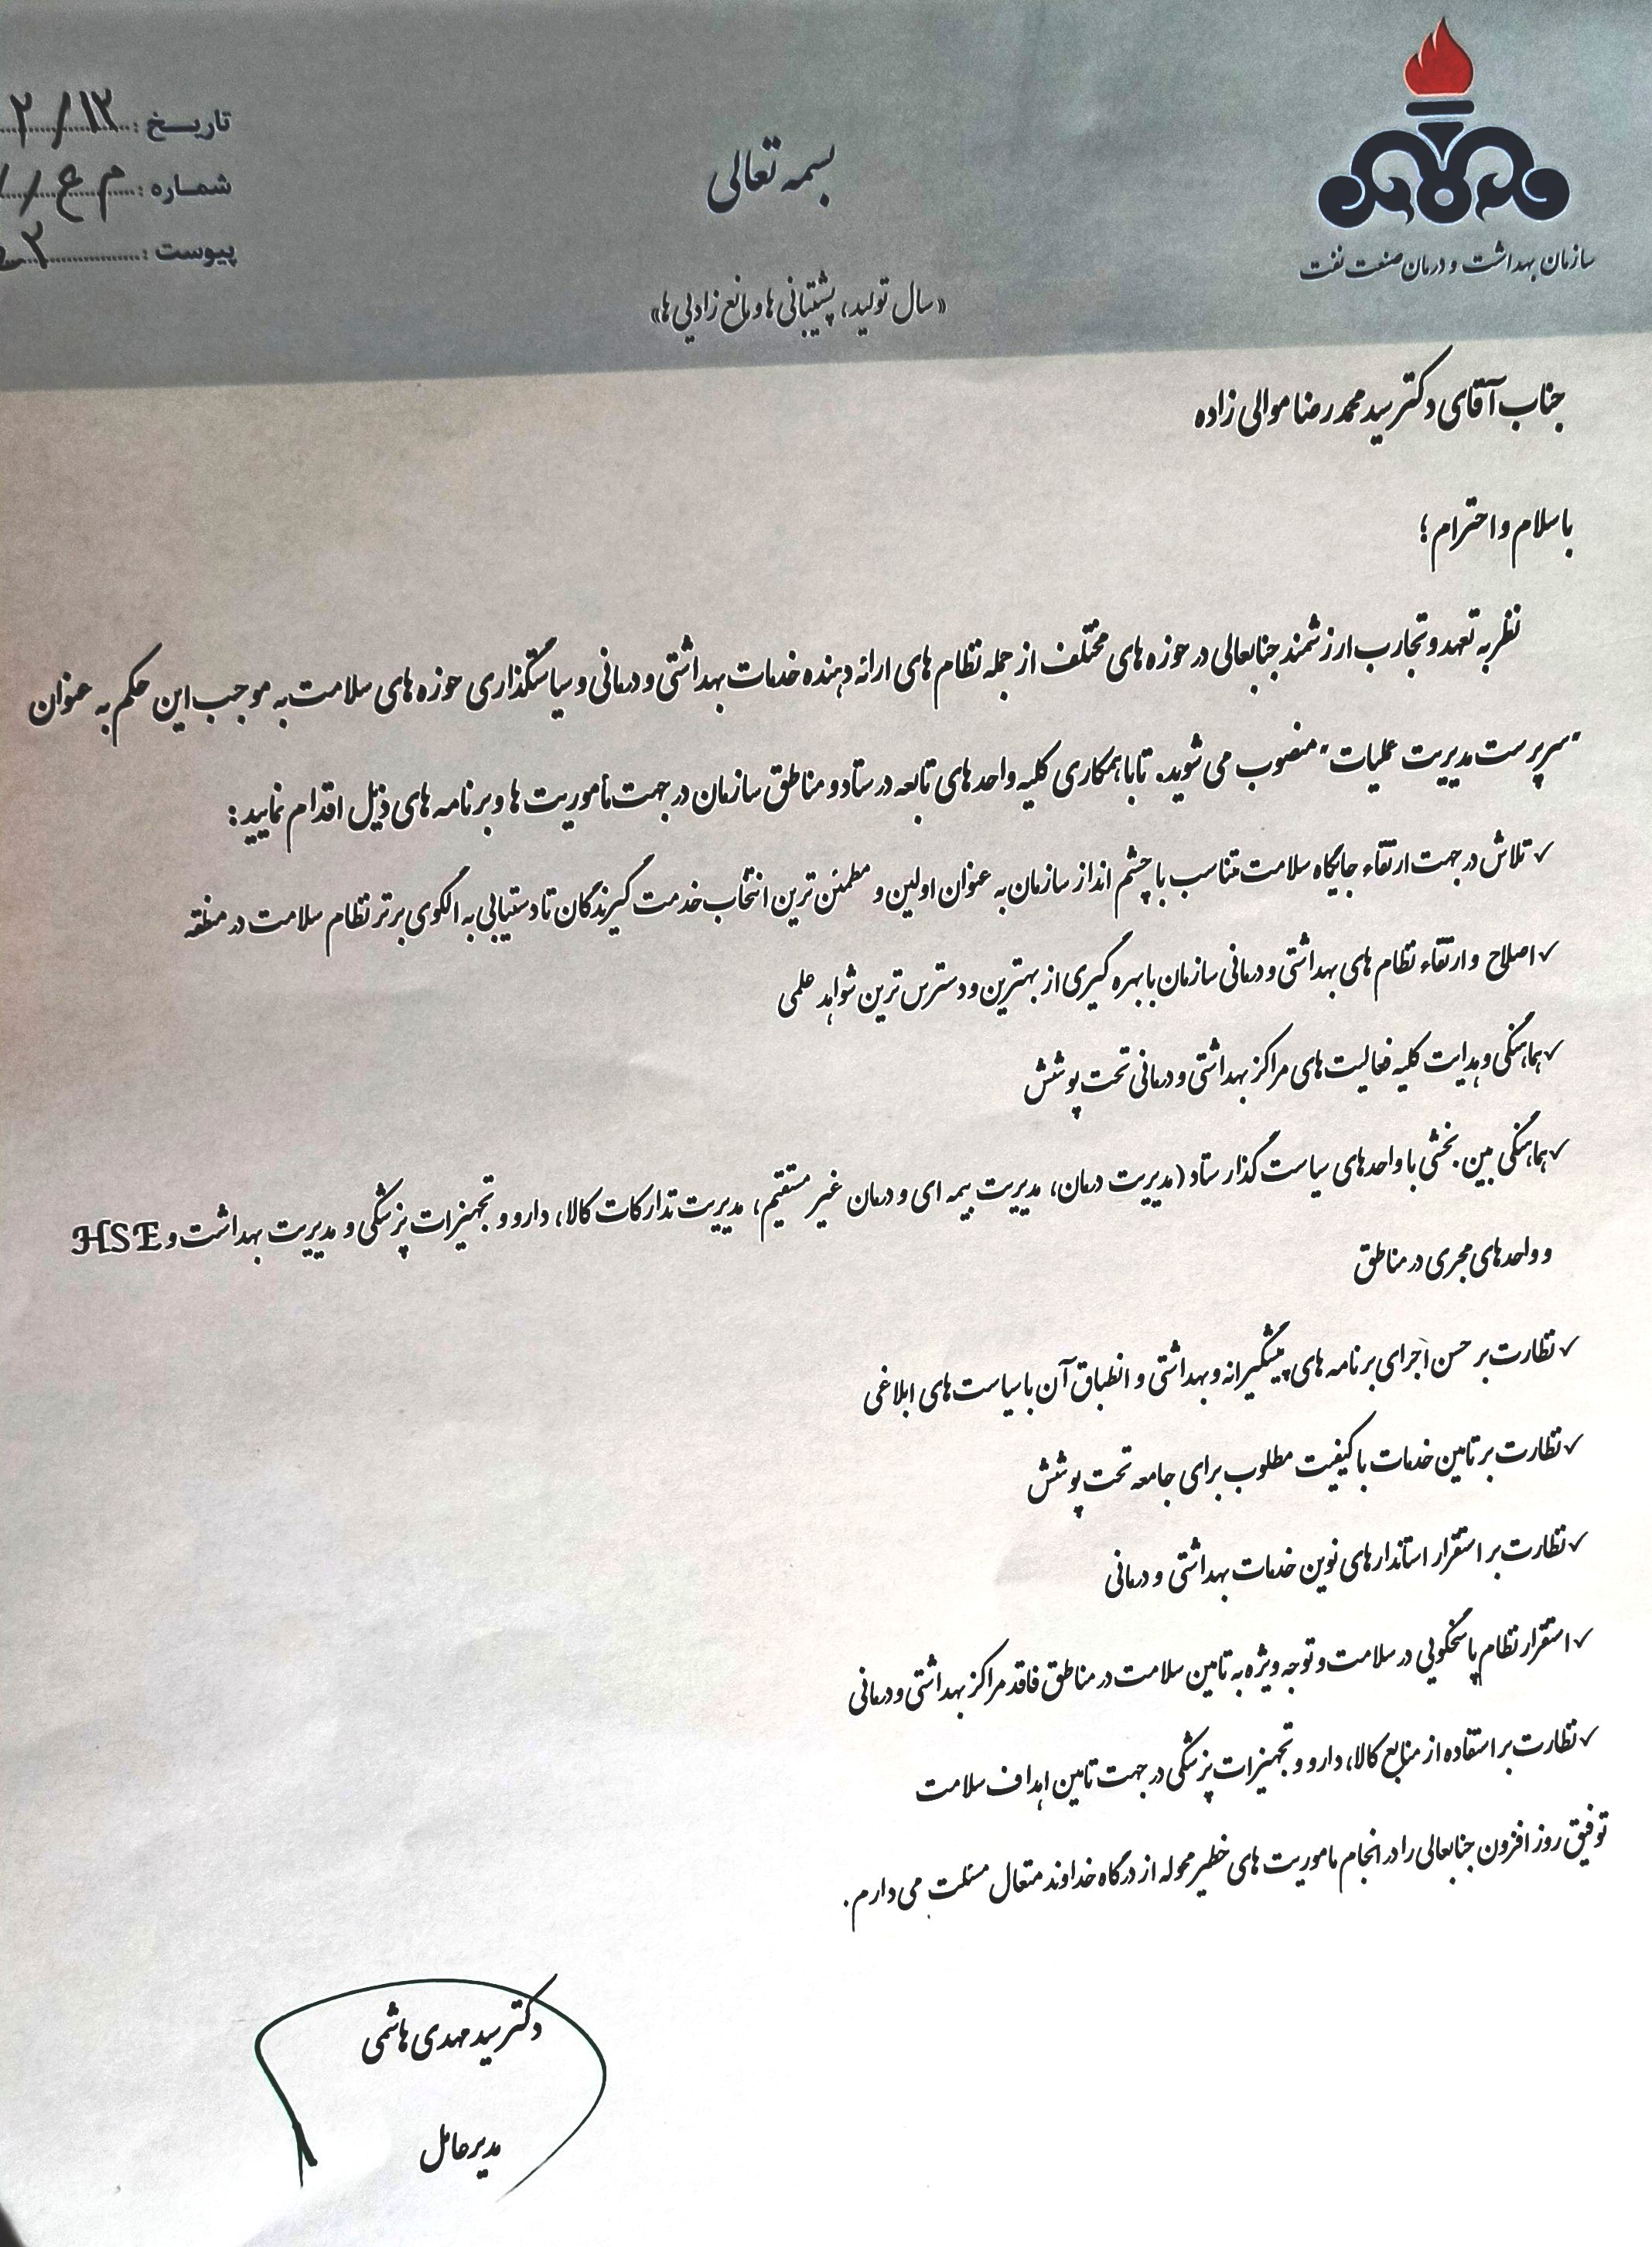 سازمان بهداشت و درمان صنعت نفت
بسمه تعالی
«سال تولید، پشتیبانی ها و مانع زدایی ها»
تاریخ : ۱۲/ ۲
شماره : م ع /
پیوست : ۲
جناب آقای دکتر سید محمد رضا موالی زاده
با سلام و احترام ؛
نظر به تعهد و تجارب ارزشمند جنابعالی در حوزه های مختلف از جمله نظام های ارائه دهنده خدمات بهداشتی و درمانی و سیاستگذاری حوزه های سلامت به موجب این حکم به عنوان
"سرپرست مدیریت عملیات" منصوب می شوید. تا با همکاری کلیه واحد های تابعه در ستاد و مناطق سازمان در جهت مأموریت ها و برنامه های ذیل اقدام نمایید :
✓ تلاش در جهت ارتقاء جایگاه سلامت متناسب با چشم انداز سازمان به عنوان اولین و مطمئن ترین انتخاب خدمت گیرندگان تا دستیابی به الگوی برتر نظام سلامت در منطقه
✓ اصلاح و ارتقاء نظام های بهداشتی و درمانی سازمان با بهره گیری از بهترین و دسترس ترین شواهد علمی
✓ هماهنگی و هدایت کلیه فعالیت های مراکز بهداشتی و درمانی تحت پوشش
✓ هماهنگی بین بخشی با واحدهای سیاست گذار ستاد (مدیریت درمان، مدیریت بیمه ای و درمان غیر مستقیم، مدیریت تدارکات کالا، دارو و تجهیزات پزشکی و مدیریت بهداشت و HSE
و واحدهای مجری در مناطق
✓ نظارت بر حسن اجرای برنامه های پیشگیرانه و بهداشتی و انطباق آن با سیاست های ابلاغی
✓ نظارت بر تامین خدمات با کیفیت مطلوب برای جامعه تحت پوشش
✓ نظارت بر استقرار استاندارهای نوین خدمات بهداشتی و درمانی
✓ استقرار نظام پاسخگویی در سلامت و توجه ویژه به تامین سلامت در مناطق فاقد مراکز بهداشتی و درمانی
✓ نظارت بر استفاده از منابع کالا، دارو و تجهیزات پزشکی در جهت تامین اهداف سلامت
توفیق روز افزون جنابعالی را در انجام ماموریت های خطیر محوله از درگاه خداوند متعال مسئلت می دارم.
دکتر سید مهدی هاشمی
مدیرعامل